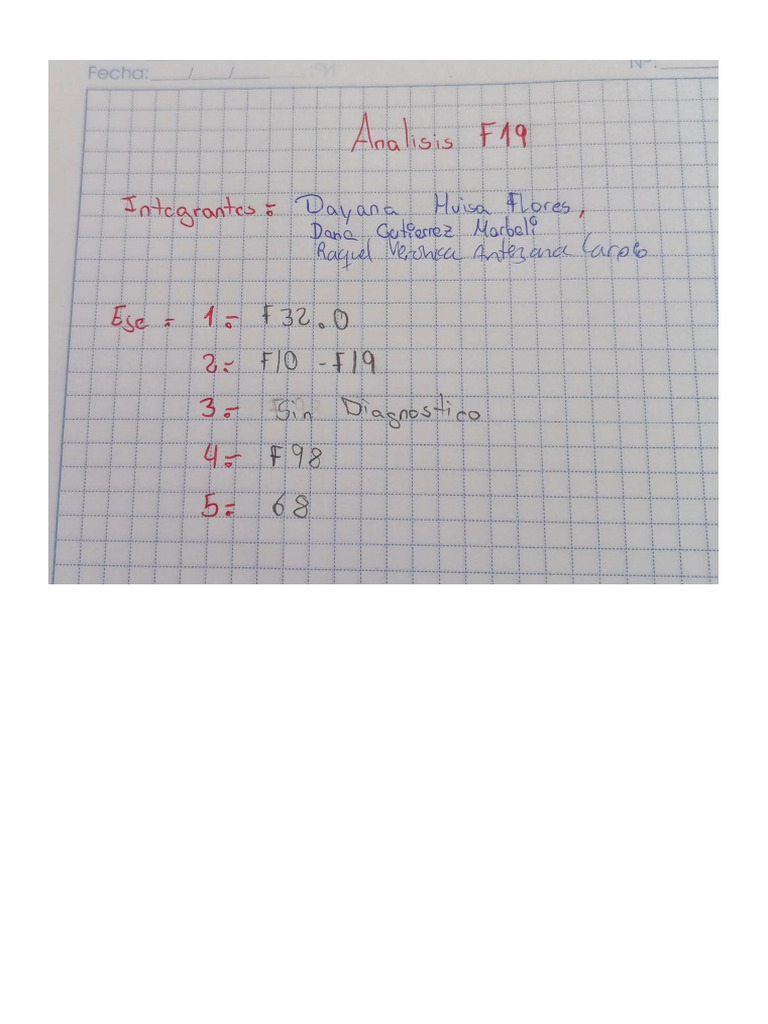 Fecha: ___/___/___ Nº.:
Analisis F19
Integrantes: Dayana Huisa Flores,
Dana Gutierrez Marbeli
Raquel Veronica Antezana
Ese = 1= F32.0
2= F10 - F19
3.- Sin Diagnostico
4= F98
5= 68